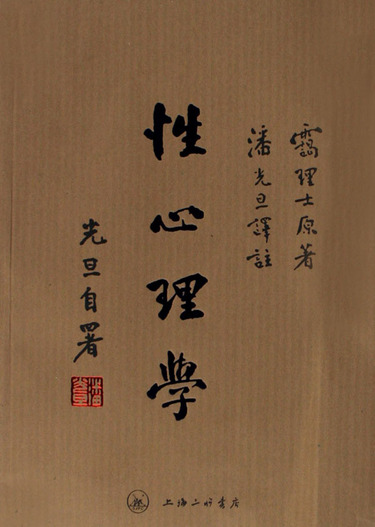 靄理士原著
潘光旦譯註
性心理學
光旦自署
潘光旦
上海三联书店